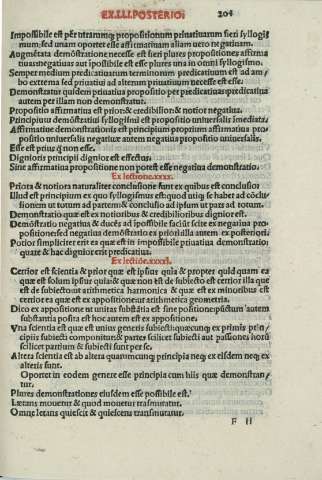 EX.I.LI.POSTERIO.
204
Impossibile est per utramque propositionum priuatiuarum fieri syllogis
mum; sed unam oportet esse affirmatiuam aliam uero negatiuam.
Augmentata demonstratione necesse est fieri plures propositiones affirma
tiuas; negatiuas aut ĩpossibile est esse plures una in omni syllogismo.
Semper medium predicatiuarum terminorum predicatiuum est ad am/
bo extrema sed priuatiui ad alterum priuatiuum necesse est esse.
Demonstratur quidem priuatiua propositio per predicatiuas; predicatiua
autem per illam non demonstratur.
Propositio affirmatiua est prior & credibilior & notior negatiua.
Principium demõstratiui syllogismi est propositio uniuersalis ĩmediata.
Affirmatiue demonstrationis est principium proprium affirmatiua pro
positio uniuersalis negatiue autem negatiua propositio uniuersalis.
Esse est prius q̃ non esse.
Dignioris principii dignior est effectus.
Sine affirmatiua propositione non potest esse negatiua demonstratio.
Ex lectione.xxxx.
Priora & notiora naturaliter conclusione sunt ex quibus est conclusio
Illud est principium ex quo syllogismus est quod utiq; se habet ad cõclu
sionem ut totum ad partem & conclusio ad ipsum ut pars ad totum.
Demonstratio quæ est ex notioribus & credibilioribus dignior est.
Demõstratio negatiua & ducẽs ad ĩpossibile faciũt scire ex negatiua pro
positione sed negatiua demonstratio ex priori illa autem ex posteriori.
Potior simpliciter erit ea quæ est in impossibile priuatiua demonstratio
quare & hac dignior erit predicatiua.
Ex lectiõe.xxxxi.
Certior est scientia & prior quæ est ipsius quia & propter quid quam ea
quæ est solum ipsius quia & quæ non est de subiecto est certior illa que
est de subiecto ut arithmetica harmonica & quæ est ex minoribus est
certior ea quæ est ex appositione ut arithmetica geometria.
Dico ex appositione ut unitas substãtia est sine positione pũctum autem
substantia posita est hoc autem est ex appositione.
Vna scientia est quæ est unius generis subiecti quæcunq; ex primis prin/
cipiis subiecti componitur & partes scilicet subiecti aut passiones horũ
scilicet partium & subiecti sunt per se.
Altera scientia est ab altera quarumcunq; principia neq; ex eisdem neq; ex
alteris sunt.
Oportet in eodem genere esse principia cum hiis quæ demonstran/
tur.
Plures demonstrationes eiusdem esse possibile est.
Lætans mouetur & quod mouetur trasmutatur.
Omne letans quiescit & quiescens transmutatur.
F II